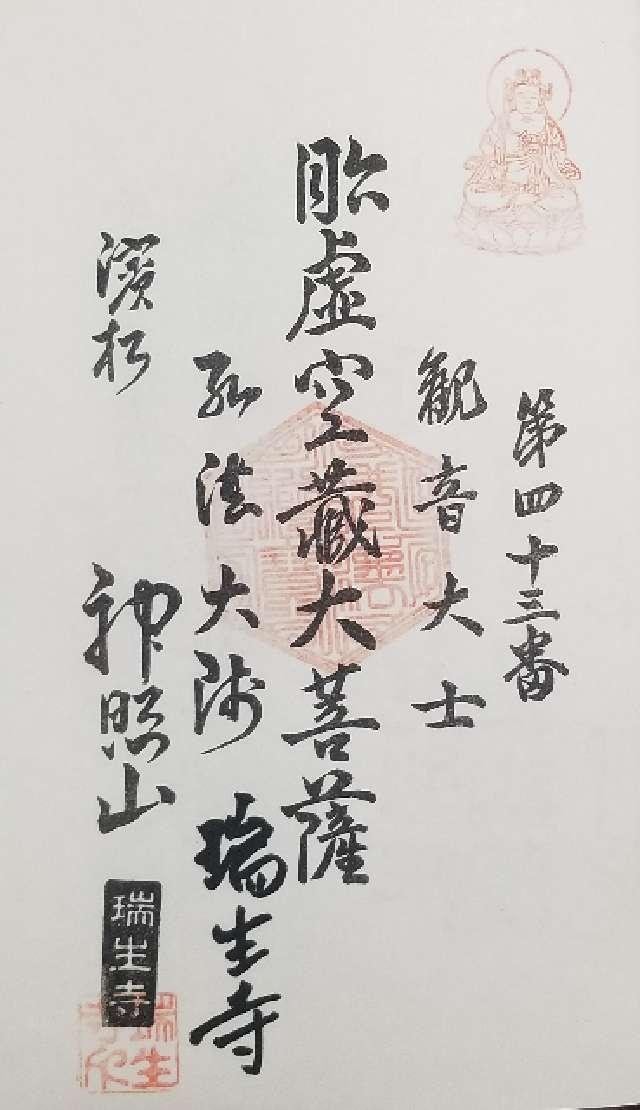 第四十三番
観音大士
虚空蔵大菩薩
弘法大師
瑞生寺
濱松
神照山
瑞生寺
瑞生寺